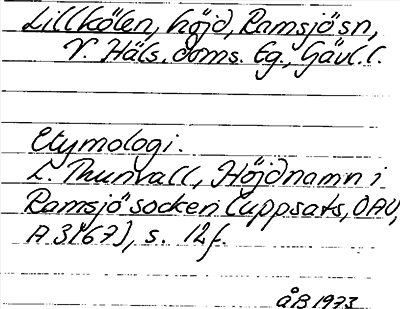 Lillkölen, höjd, Ramsjö sn,
V. Häls. doms. Eg., Gävl. l.
Etymologi.
L. Thunvall, Höjdnamn i
Ramsjö socken (uppsats, OAU,
A 3167), s. 12f.
åB 1973